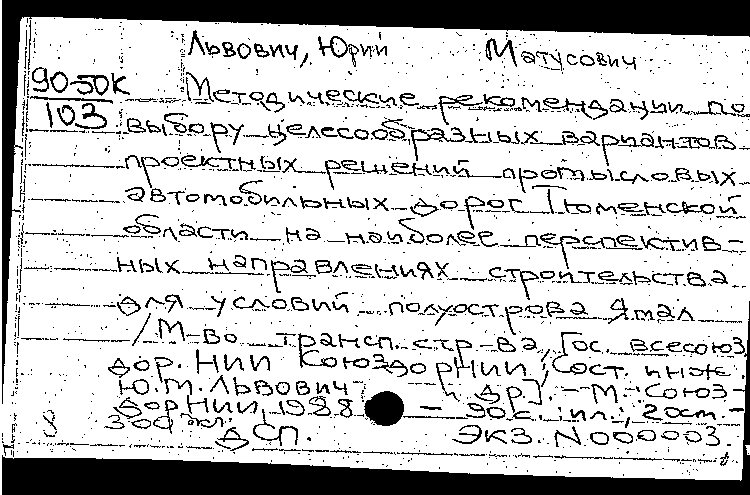 Львович, Юрий Матусович
90-50К
103
Методические рекомендации по
выбору целесообразных вариантов
проектных решений промысловых
автомобильных дорог Тюменской
области на наиболее перспектив-
ных направлениях строительства
для условий полуострова Ямал
/М-во трансп. стр-ва, Гос. всесоюз.
дор. НИИ СоюздорНИИ; Сост. инж.
Ю.М. Львович и др]. - М.: Союз-
дорНИИ, 1988 - 90 с.: ил.; 20 см. -
300 экз.
ДСП. ЭКЗ. N000003.
8